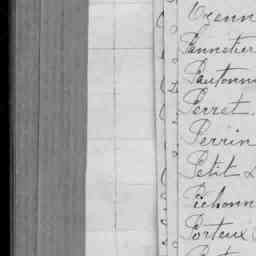 Ozenn
Pannetier
Pautonni
Perret
Perrin
Petit
Pichonn
Porteux